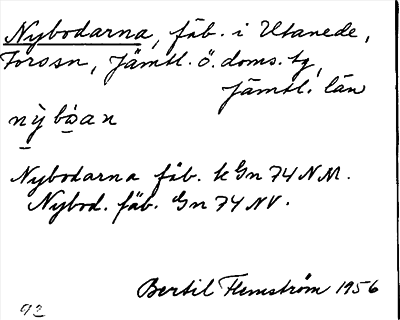 Nybodarna, fäb. i Utanede,
Forssn, Jämtl. ö. doms. tg,
Jämtl. län
nỳbòan
Nybodarna fäb. k Gn 74 NM.
Nybod. fäb. Gn 74 NV.
Bertil Flemström 1956
92